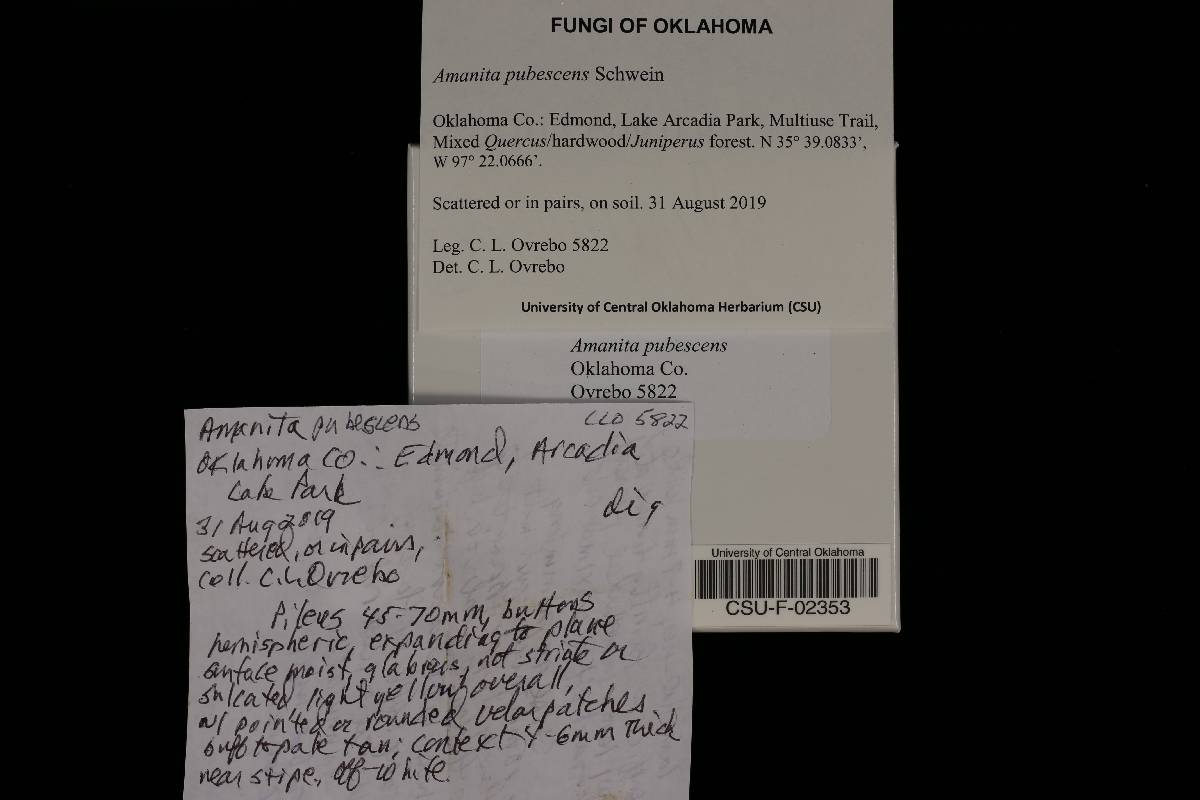 FUNGI OF OKLAHOMA
Amanita pubescens Schwein
Oklahoma Co.: Edmond, Lake Arcadia Park, Multiuse Trail,
Mixed Quercus/hardwood/Juniperus forest. N 35° 39.0833’,
W 97° 22.0666’.
Scattered or in pairs, on soil. 31 August 2019
Leg. C. L. Ovrebo 5822
Det. C. L. Ovrebo
University of Central Oklahoma Herbarium (CSU)
Amanita pubescens
Oklahoma Co.
Ovrebo 5822
Amanita pubescens CLO 5822
Oklahoma Co.: Edmond, Arcadia
Lake Park
dig
31 Aug 2019
scattered, or in pairs,
coll. C.L. Ovrebo
Pileus 45-70mm, buttons
hemispheric, expanding to plane
surface moist, glabrous, not striate or
sulcated, light yellow overall,
w/ pointed or rounded velar patches
buff to pale tan; context 4-6mm thick
near stipe, off-white.
University of Central Oklahoma
CSU-F-02353